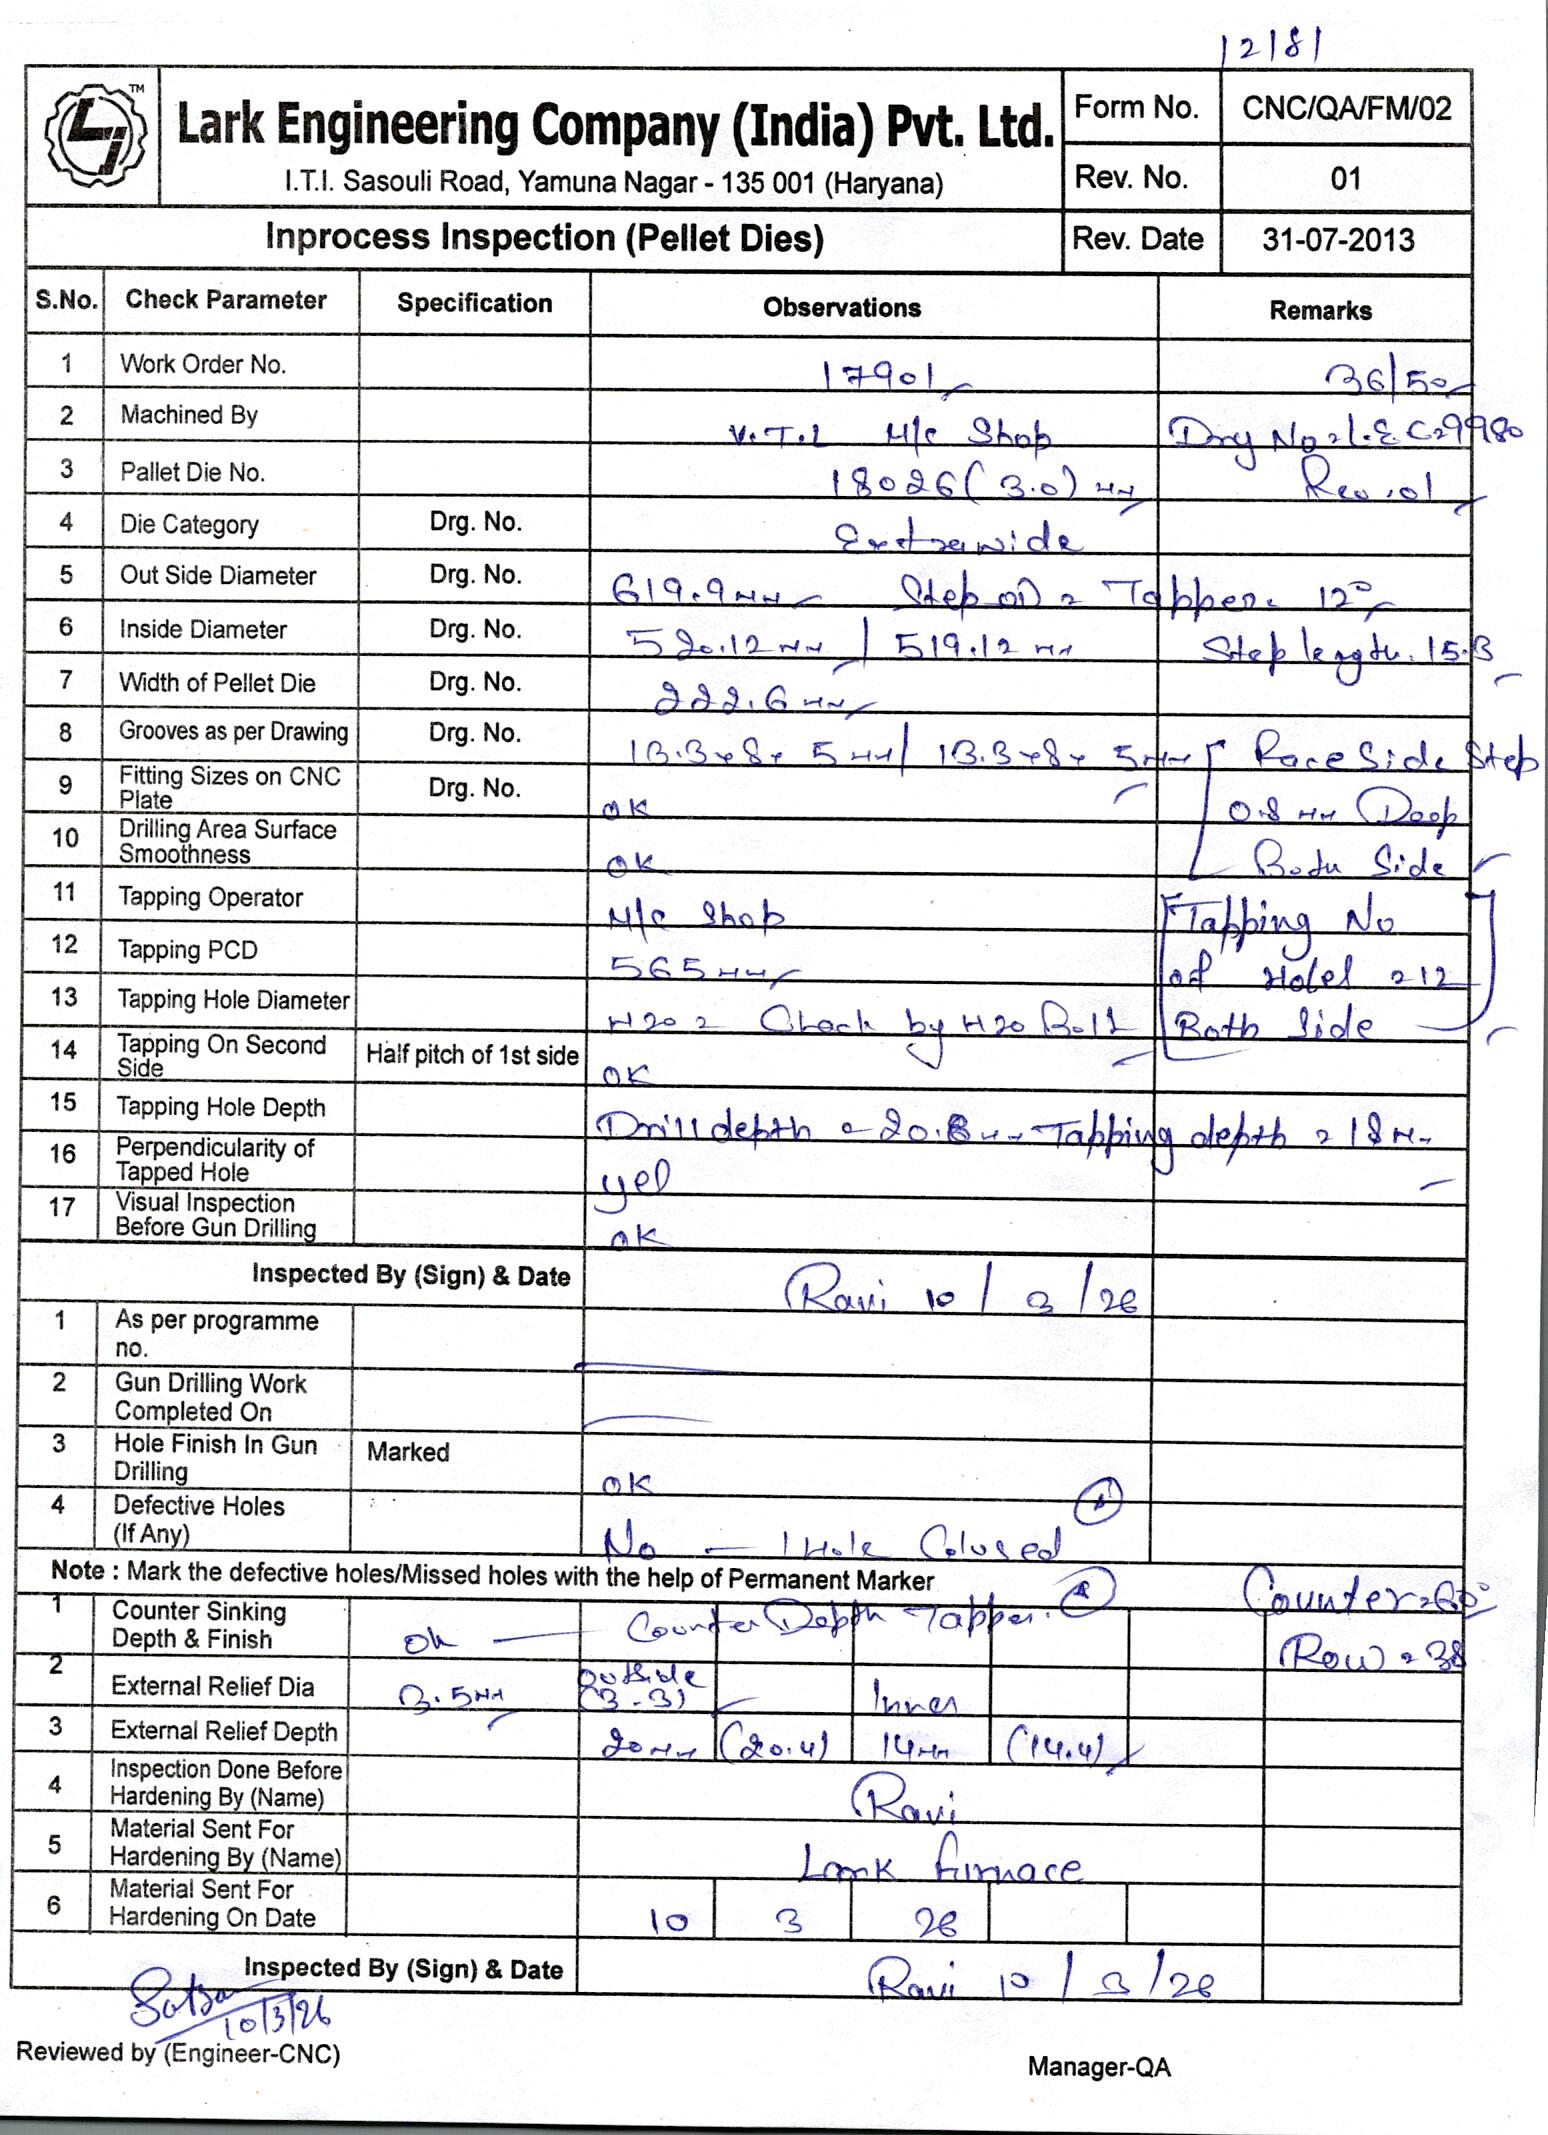 12181
TM
Lark Engineering Company (India) Pvt. Ltd.
I.T.I. Sasouli Road, Yamuna Nagar - 135 001 (Haryana)
Form No. CNC/QA/FM/02
Rev. No. 01
Inprocess Inspection (Pellet Dies) Rev. Date 31-07-2013
S.No. Check Parameter Specification Observations Remarks
1 Work Order No. 17901 36/50
2 Machined By V.T.L M/c Shop Drg No = L.E.C29980
3 Pallet Die No. 18026 (3.0) mm Rev. 01
4 Die Category Drg. No. Extrawide
5 Out Side Diameter Drg. No. 619.9mm Step OD = Tapper = 12°
6 Inside Diameter Drg. No. 520.12 mm / 519.12 mm Step length. 15.3
7 Width of Pellet Die Drg. No. 222.6 mm
8 Grooves as per Drawing Drg. No. 13.3x8x5mm / 13.3x8x5mm Race Side Step
9 Fitting Sizes on CNC Plate Drg. No. OK 0.8 mm Deep
10 Drilling Area Surface Smoothness OK Both Side
11 Tapping Operator M/c Shop Tapping No
12 Tapping PCD 565mm of Holes = 12
13 Tapping Hole Diameter M20 = Check by M20 Bolt Both Side
14 Tapping On Second Side Half pitch of 1st side OK
15 Tapping Hole Depth Drill depth = 20.8mm Tapping depth = 18 mm
16 Perpendicularity of Tapped Hole yes
17 Visual Inspection Before Gun Drilling OK
Inspected By (Sign) & Date Ravi 10/3/26
1 As per programme no.
2 Gun Drilling Work Completed On
3 Hole Finish In Gun Drilling Marked OK
4 Defective Holes (If Any) No — 1 Hole Colused
Note : Mark the defective holes/Missed holes with the help of Permanent Marker
1 Counter Sinking Depth & Finish Ok — Counter Depth Tapper. Counter = 60°
Row = 38
2 External Relief Dia 3.5mm outside (3-3) Inner
3 External Relief Depth 20mm (20.4) 14mm (14.4)
4 Inspection Done Before Hardening By (Name) Ravi
5 Material Sent For Hardening By (Name) Lark furnace
6 Material Sent For Hardening On Date 10 3 26
Inspected By (Sign) & Date Ravi 10/3/26
10/3/26
Reviewed by (Engineer-CNC)
Manager-QA